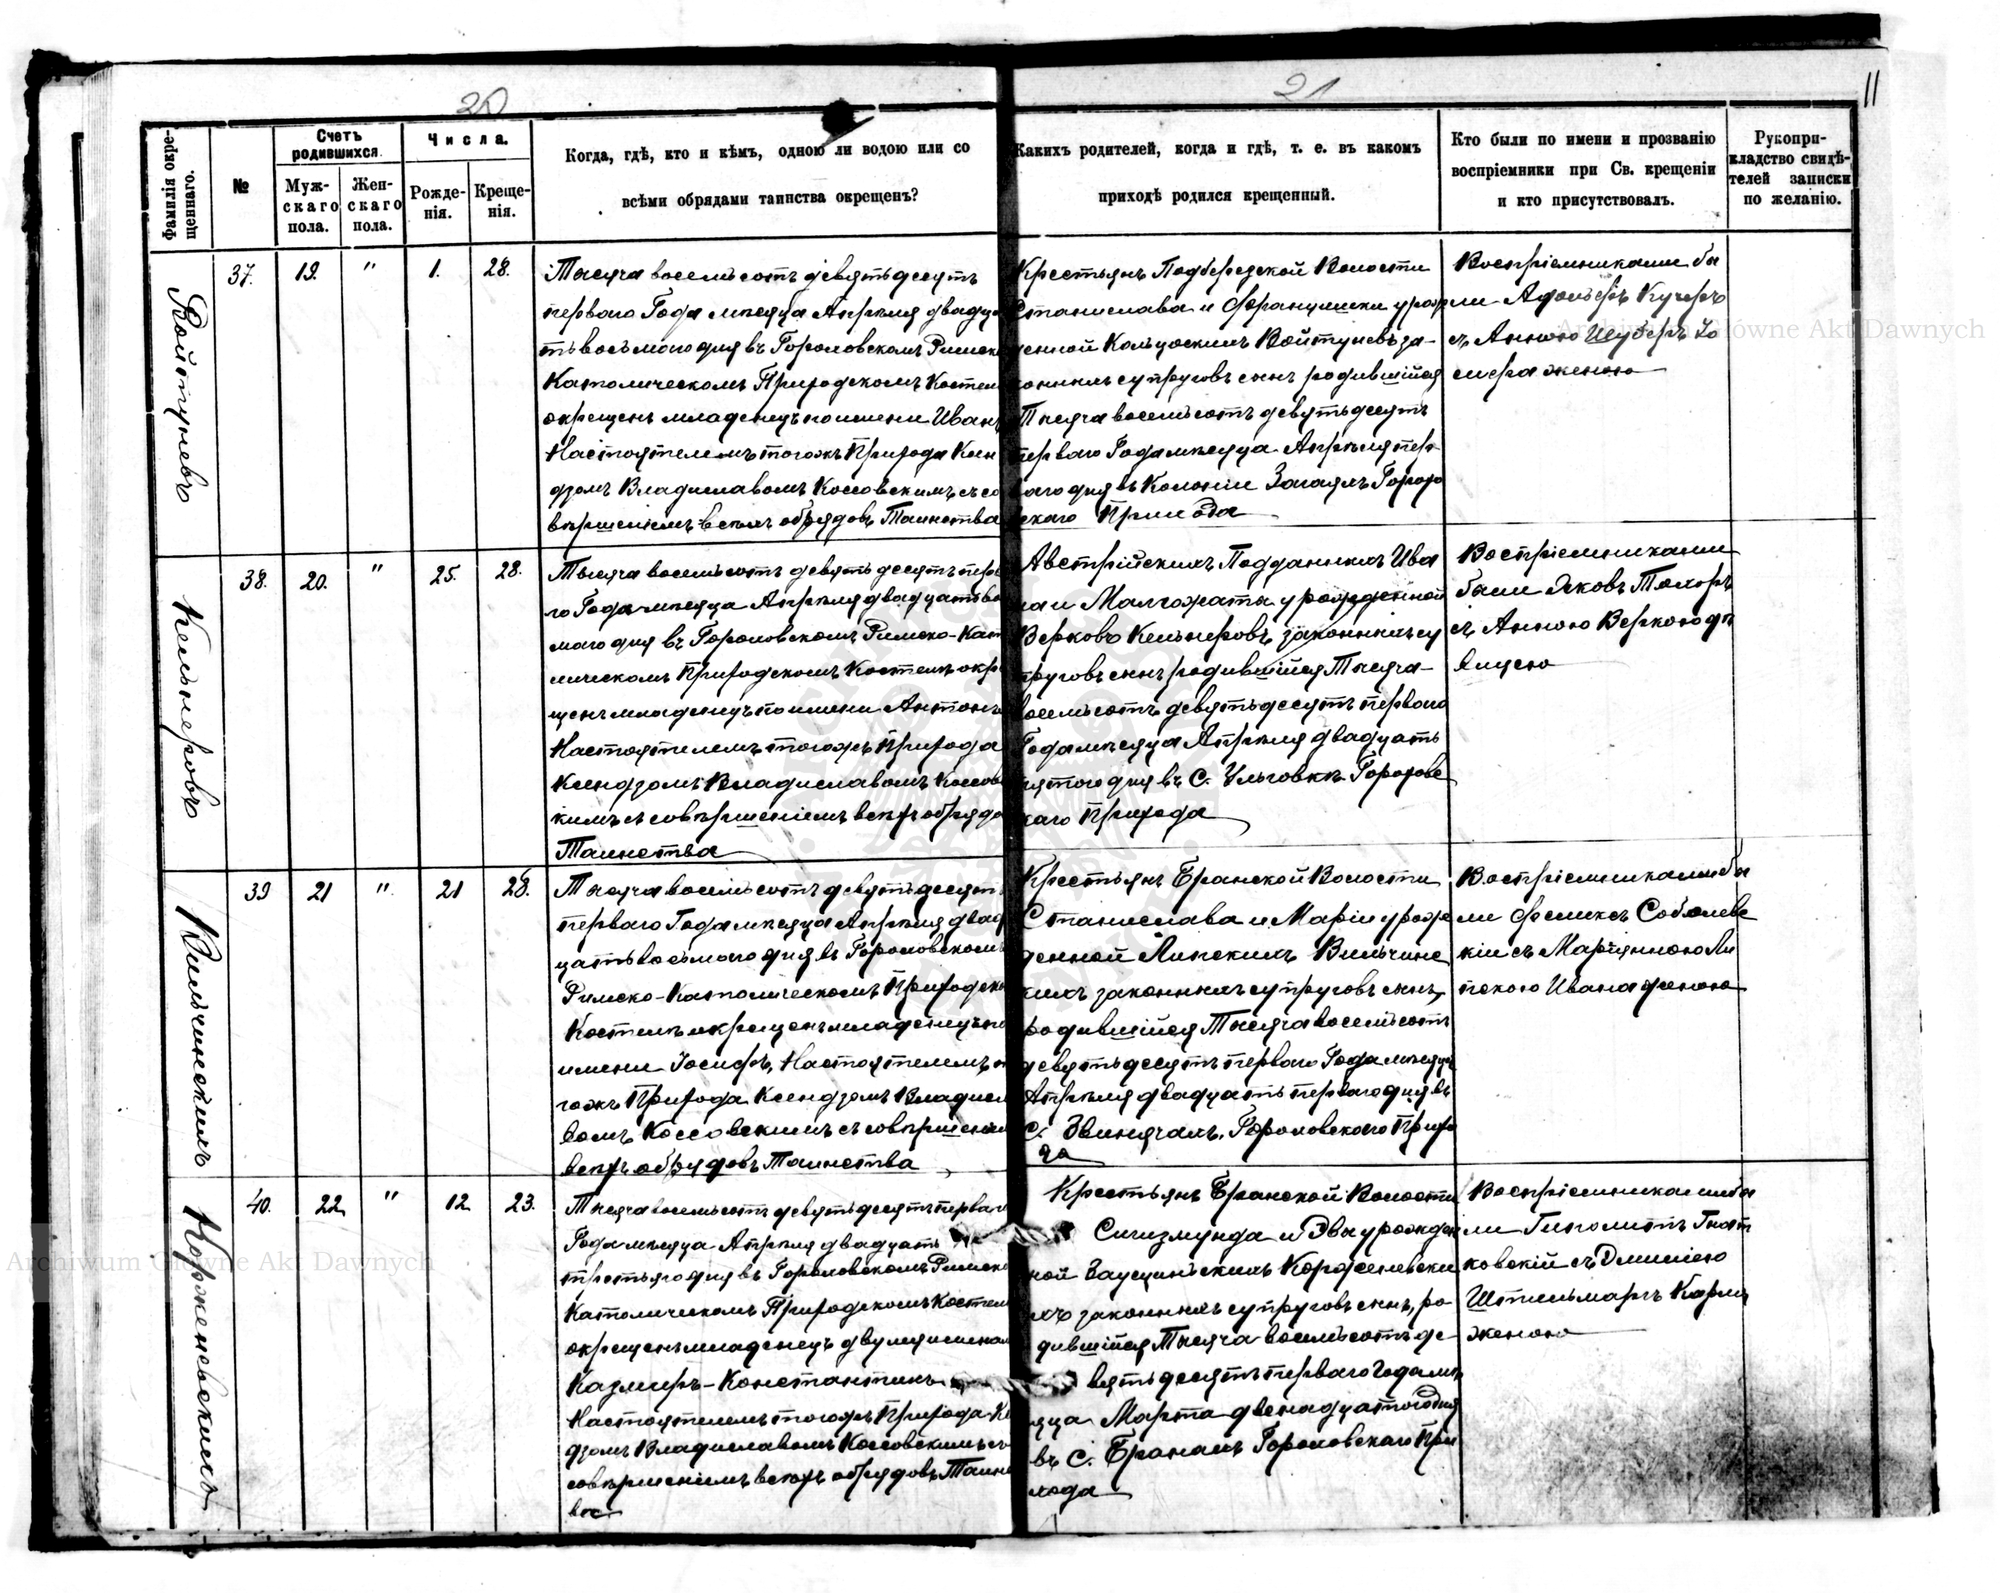 20
21
11
Фамилія окре-
щеннаго.
№
Счетъ
родившихся.
Муж-
скаго
пола.
Жен-
скаго
пола.
Числа.
Рожде-
нія.
Креще-
нія.
Когда, гдѣ, кто и кѣмъ, одною ли водою или со
всѣми обрядами таинства окрещенъ?
Какихъ родителей, когда и гдѣ, т. е. въ какомъ
приходѣ родился крещенный.
Кто были по имени и прозванію
воспріемники при Св. крещеніи
и кто присутствовалъ.
Рукопри-
кладство свидѣ-
телей записки
по желанію.
Войтуневъ
37. 19. " 1. 28.
Тысяча восемьсотъ девятьдесятъ
перваго Года мѣсяца Апрѣля двадца
тьвосьмого дня въ Гороховскомъ Римско
Католическомъ Приходскомъ Костел
окрещенъ младенецъ по имени Иванъ
Настоятелемъ тогожъ Прихода Ксен
дзомъ Владиславомъ Коссовскимъ съ со
вершеніемъ всѣхъ обрядовъ Таинства
Крестьянъ Подберезской Волости
Станислава и Францишки урож
денной Кольцоскихъ Войтуневъ за-
конныхъ супруговъ сынъ родившійся
Тысяча восемьсотъ девятьдесятъ
перваго Года мѣсяца Апрѣля пер-
ваго дня въ Колоніи Загаяхъ Горохо
вскаго Прихода
Воспріемниками бы
ли Адольфъ Кучеръ
съ Анною Шуберъ Іо
сифа женою
Кельнеровъ
38. 20. " 25. 28.
Тысяча восемьсотъ девятьдесятъ перва
го Года мѣсяца Апрѣля двадцатьвось
мого дня въ Гороховскомъ Римско-Като
лическомъ Приходскомъ Костелѣ окре
щенъ младенецъ по имени Антонъ
Настоятелемъ тогожъ Прихода
Ксендзомъ Владиславомъ Коссовс
кимъ съ совершеніемъ всѣхъ обрядо
Таинства
Австрійскихъ Подданныхъ Ива
на и Малгожаты урожденной
Верковъ Кельнеровъ законныхъ су
пруговъ сынъ родившійся Тысяча-
восемьсотъ девятьдесятъ перваго
Года мѣсяца Апрѣля двадцать
пятого дня въ С. Ульговкѣ Горохов
скаго Прихода
Воспріемниками
были Яковъ Тохоръ
съ Анною Веркою дѣ
вицею
Вильчинскихъ
39 21 " 21 28.
Тысяча восемьсотъ девятьдесятъ
перваго Года мѣсяца Апрѣля двад
цатьвосьмого дня въ Гороховскомъ
Римско-Католическомъ Приходско
Костелѣ окрещенъ младенецъ по
имени Іосифъ, Настоятелемъ то
гожъ Прихода Ксендзомъ Владисла
вомъ Коссовскимъ съ совершеніем
всѣхъ обрядовъ Таинства
Крестьянъ Бранской Волости
Станислава и Маріи урож
денной Липскихъ Вильчинс
кихъ законныхъ супруговъ сынъ
родившійся Тысяча восемьсотъ
девятьдесятъ перваго Года мѣсяца
Апрѣля двадцать перваго дня въ
С. Звинячахъ Гороховскаго Прихо
да
Воспріемниками бы
ли Феликсъ Соболевс
кій съ Маріянною Ли
пскою Ивана женою
Корженевскихъ
40. 22 " 12 23.
Тысяча восемьсотъ девятьдесятъ перваго
Года мѣсяца Апрѣля двадцать
третьяго дня въ Гороховскомъ Римско
Католическомъ Приходскомъ Костелѣ
окрещенъ младенецъ двумя именам
Казміръ-Константинъ
Настоятелемъ тогожъ Прихода Ксен
дзомъ Владиславомъ Коссовскимъ съ
совершеніемъ всѣхъ обрядовъ Таинс
Крестьянъ Бранской Волости
Сигизмунда и Эвы урожден
ной Заусцинскихъ Корженевски
хъ законныхъ супруговъ сынъ, ро
дившійся Тысяча восемьсотъ де-
вятьдесятъ перваго Года мѣ
сяца Марта двенадцатого дня
въ С. Бранахъ Гороховскаго При
хода
Воспріемниками бы
ли Гиполитъ Гнат
ковскій съ Эмиліею
Штельмаръ Карла
женою
Archiwum Główne Akt Dawnych
Archiwum Główne Akt Dawnych